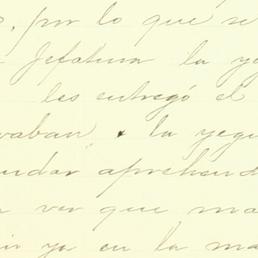 , por lo que se
Jefatura la ye
les entregó el
vaban, la yegu
ndar aprehend
n ver que ma
ir ya en la ma